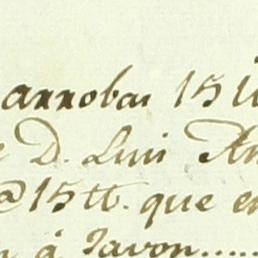 arrobas 15 tt
D. Luis An
@ 15 tt. que en
á Javon......